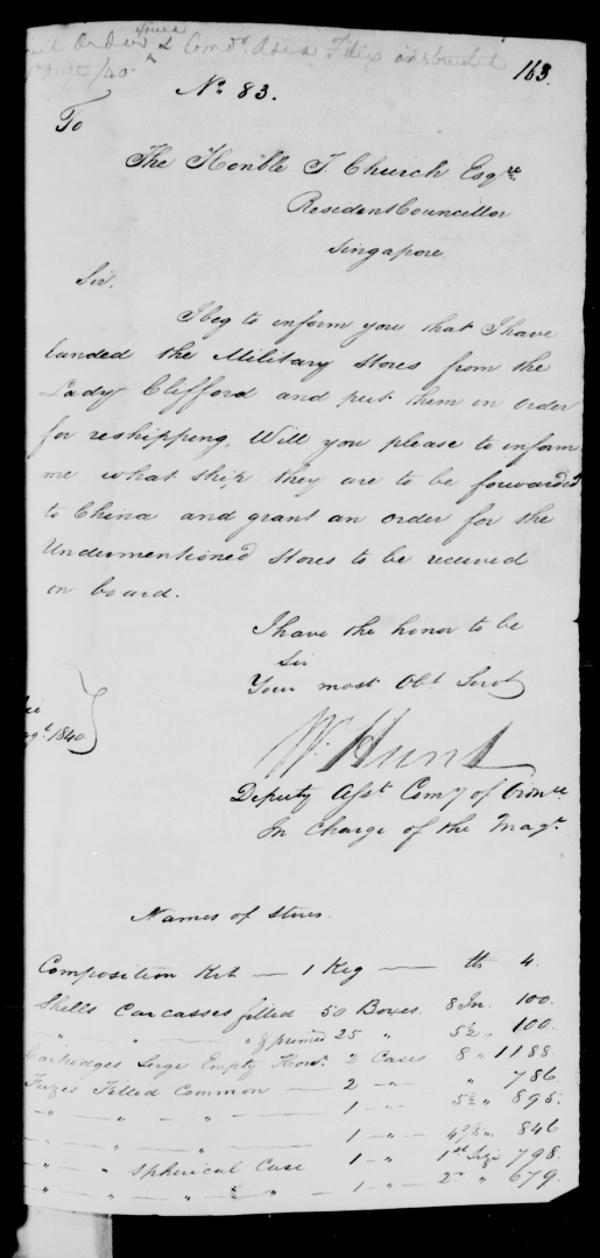 Order & Com
/40
163
No. 83.
To
The Honble T. Church Esqre.
Resident Councillor
Singapore.
Sir,
I beg to inform you that I have
landed the Military Stores from the
Lady Clifford and put them in order
for reshipping. Will you please to inform
me what ship they are to be forwarded
to China and grant an order for the
Undermentioned Stores to be received
on board.
I have the honor to be
Sir
Your most Obt. Servt
1840.
W. Hunt
Deputy Asst. Comy of Ordnce
In Charge of the Magt.
Names of Stores.
Composition Kit — 1 Keg — lb 4.
Shells Carcasses filled 50 Boxes. 8 In. 100.
" " " & primed 25 " 5½ " 100.
Cartridges Serge Empty Howr. 2 Cases 8 " 1188.
Fuzes Filled Common — 2 — " — " 786.
— " — " — " — 1 — " — 5½ " 895.
— " — " — 1 — " — 4 2/5 " 846
— " — " Spherical Case 1 — " 1st Size 798.
— " — " — " " — 1 — " — 2d " 679.